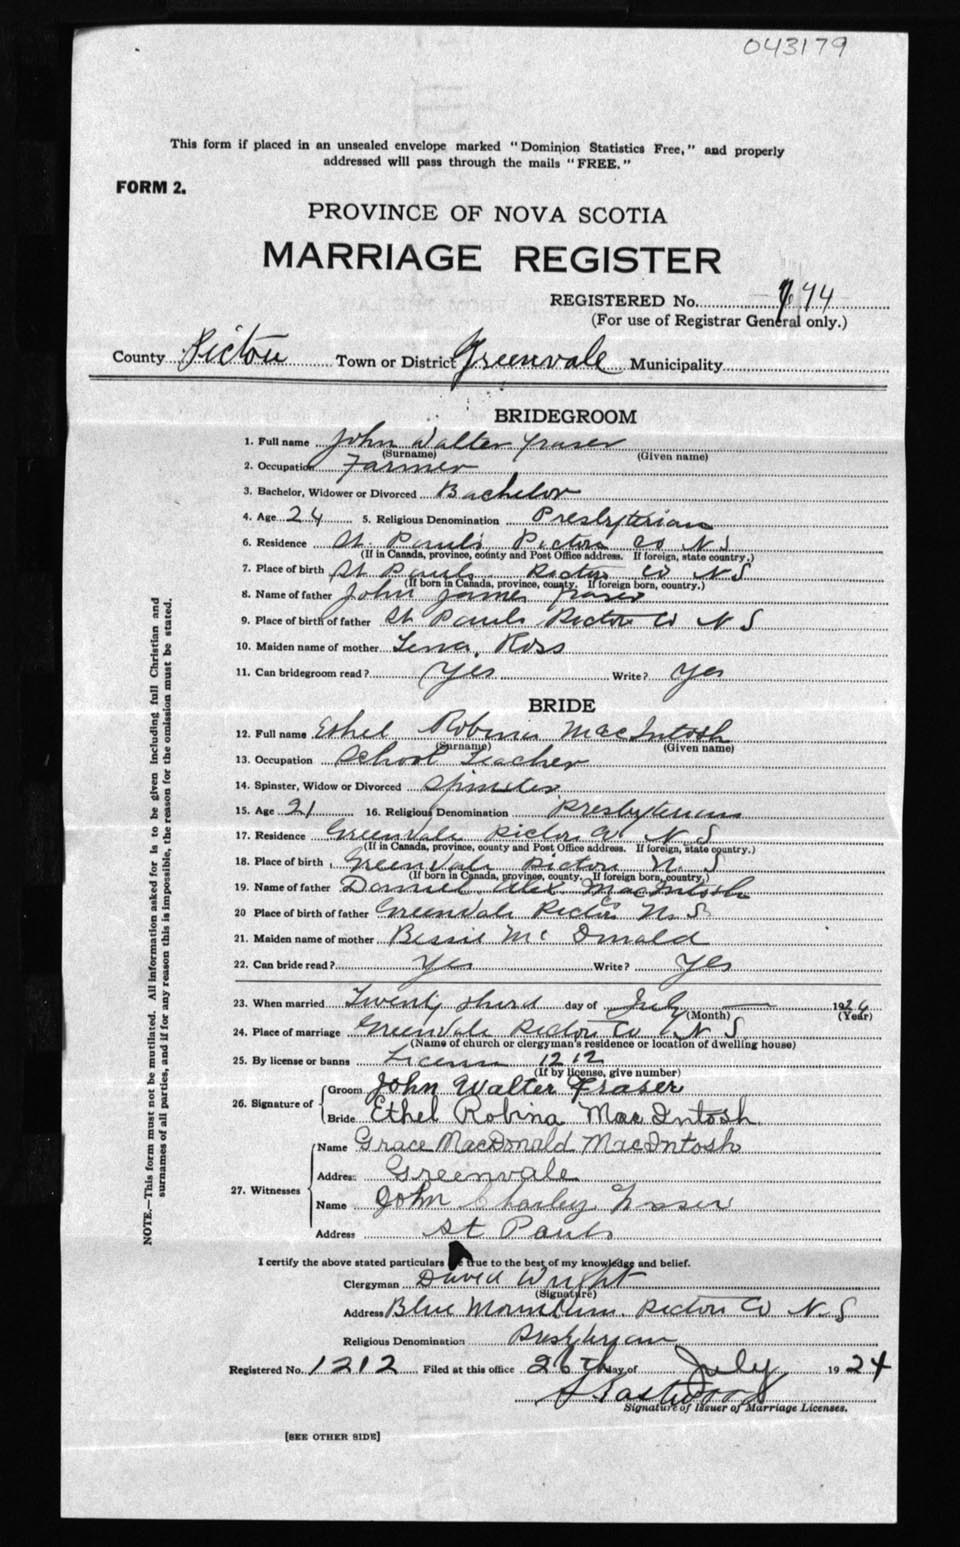 043179
This form if placed in an unsealed envelope marked "Dominion Statistics Free," and properly
addressed will pass through the mails "FREE."
FORM 2.
PROVINCE OF NOVA SCOTIA
MARRIAGE REGISTER
REGISTERED No. 744
(For use of Registrar General only.)
County Pictou Town or District Greenvale Municipality
BRIDEGROOM
1. Full name John Walter Fraser
(Surname) (Given name)
2. Occupation Farmer
3. Bachelor, Widower or Divorced Bachelor
4. Age 24 5. Religious Denomination Presbyterian
6. Residence St. Pauls Pictou Co N S
(If in Canada, province, county and Post Office address. If foreign, state country.)
7. Place of birth St Pauls Pictou Co N S
(If born in Canada, province, county. If foreign born, country.)
8. Name of father John James Fraser
9. Place of birth of father St Pauls Pictou Co N S
10. Maiden name of mother Ross
11. Can bridegroom read? Yes Write? Yes
BRIDE
12. Full name Ethel Robina MacIntosh
(Surname) (Given name)
13. Occupation School Teacher
14. Spinster, Widow or Divorced Spinster
15. Age 21 16. Religious Denomination Presbyterian
17. Residence GreenVale Pictou Co N S
(If in Canada, province, county and Post Office address. If foreign, state country.)
18. Place of birth GreenVale Pictou N. S
(If born in Canada, province, county. If foreign born, country.)
19. Name of father Daniel Alex MacIntosh
20 Place of birth of father GreenVale Pictou Co N. S
21. Maiden name of mother Bessie Mc Donald
22. Can bride read? Yes Write? Yes
23. When married Twenty third day of July 1924
(Month) (Year)
24. Place of marriage GreenVale Pictou Co N S
(Name of church or clergyman's residence or location of dwelling house)
25. By license or banns License 1212
(If by license, give number)
26. Signature of
Groom John Walter Fraser
Bride Ethel Robina MacIntosh.
27. Witnesses
Name Grace MacDonald MacIntosh
Address Greenvale
Name John Charley Fraser
Address St Pauls
I certify the above stated particulars be true to the best of my knowledge and belief.
Clergyman David Wright
(Signature)
Address Blue Mountain. Pictou Co N S
Religious Denomination Presbyterian
Registered No. 1212 Filed at this office 26th day of July 1924
Signature of Issuer of Marriage Licenses.
[SEE OTHER SIDE]
NOTE.—This form must not be mutilated. All information asked for is to be given including full Christian and
surnames of all parties, and if for any reason this is impossible, the reason for the omission must be stated.